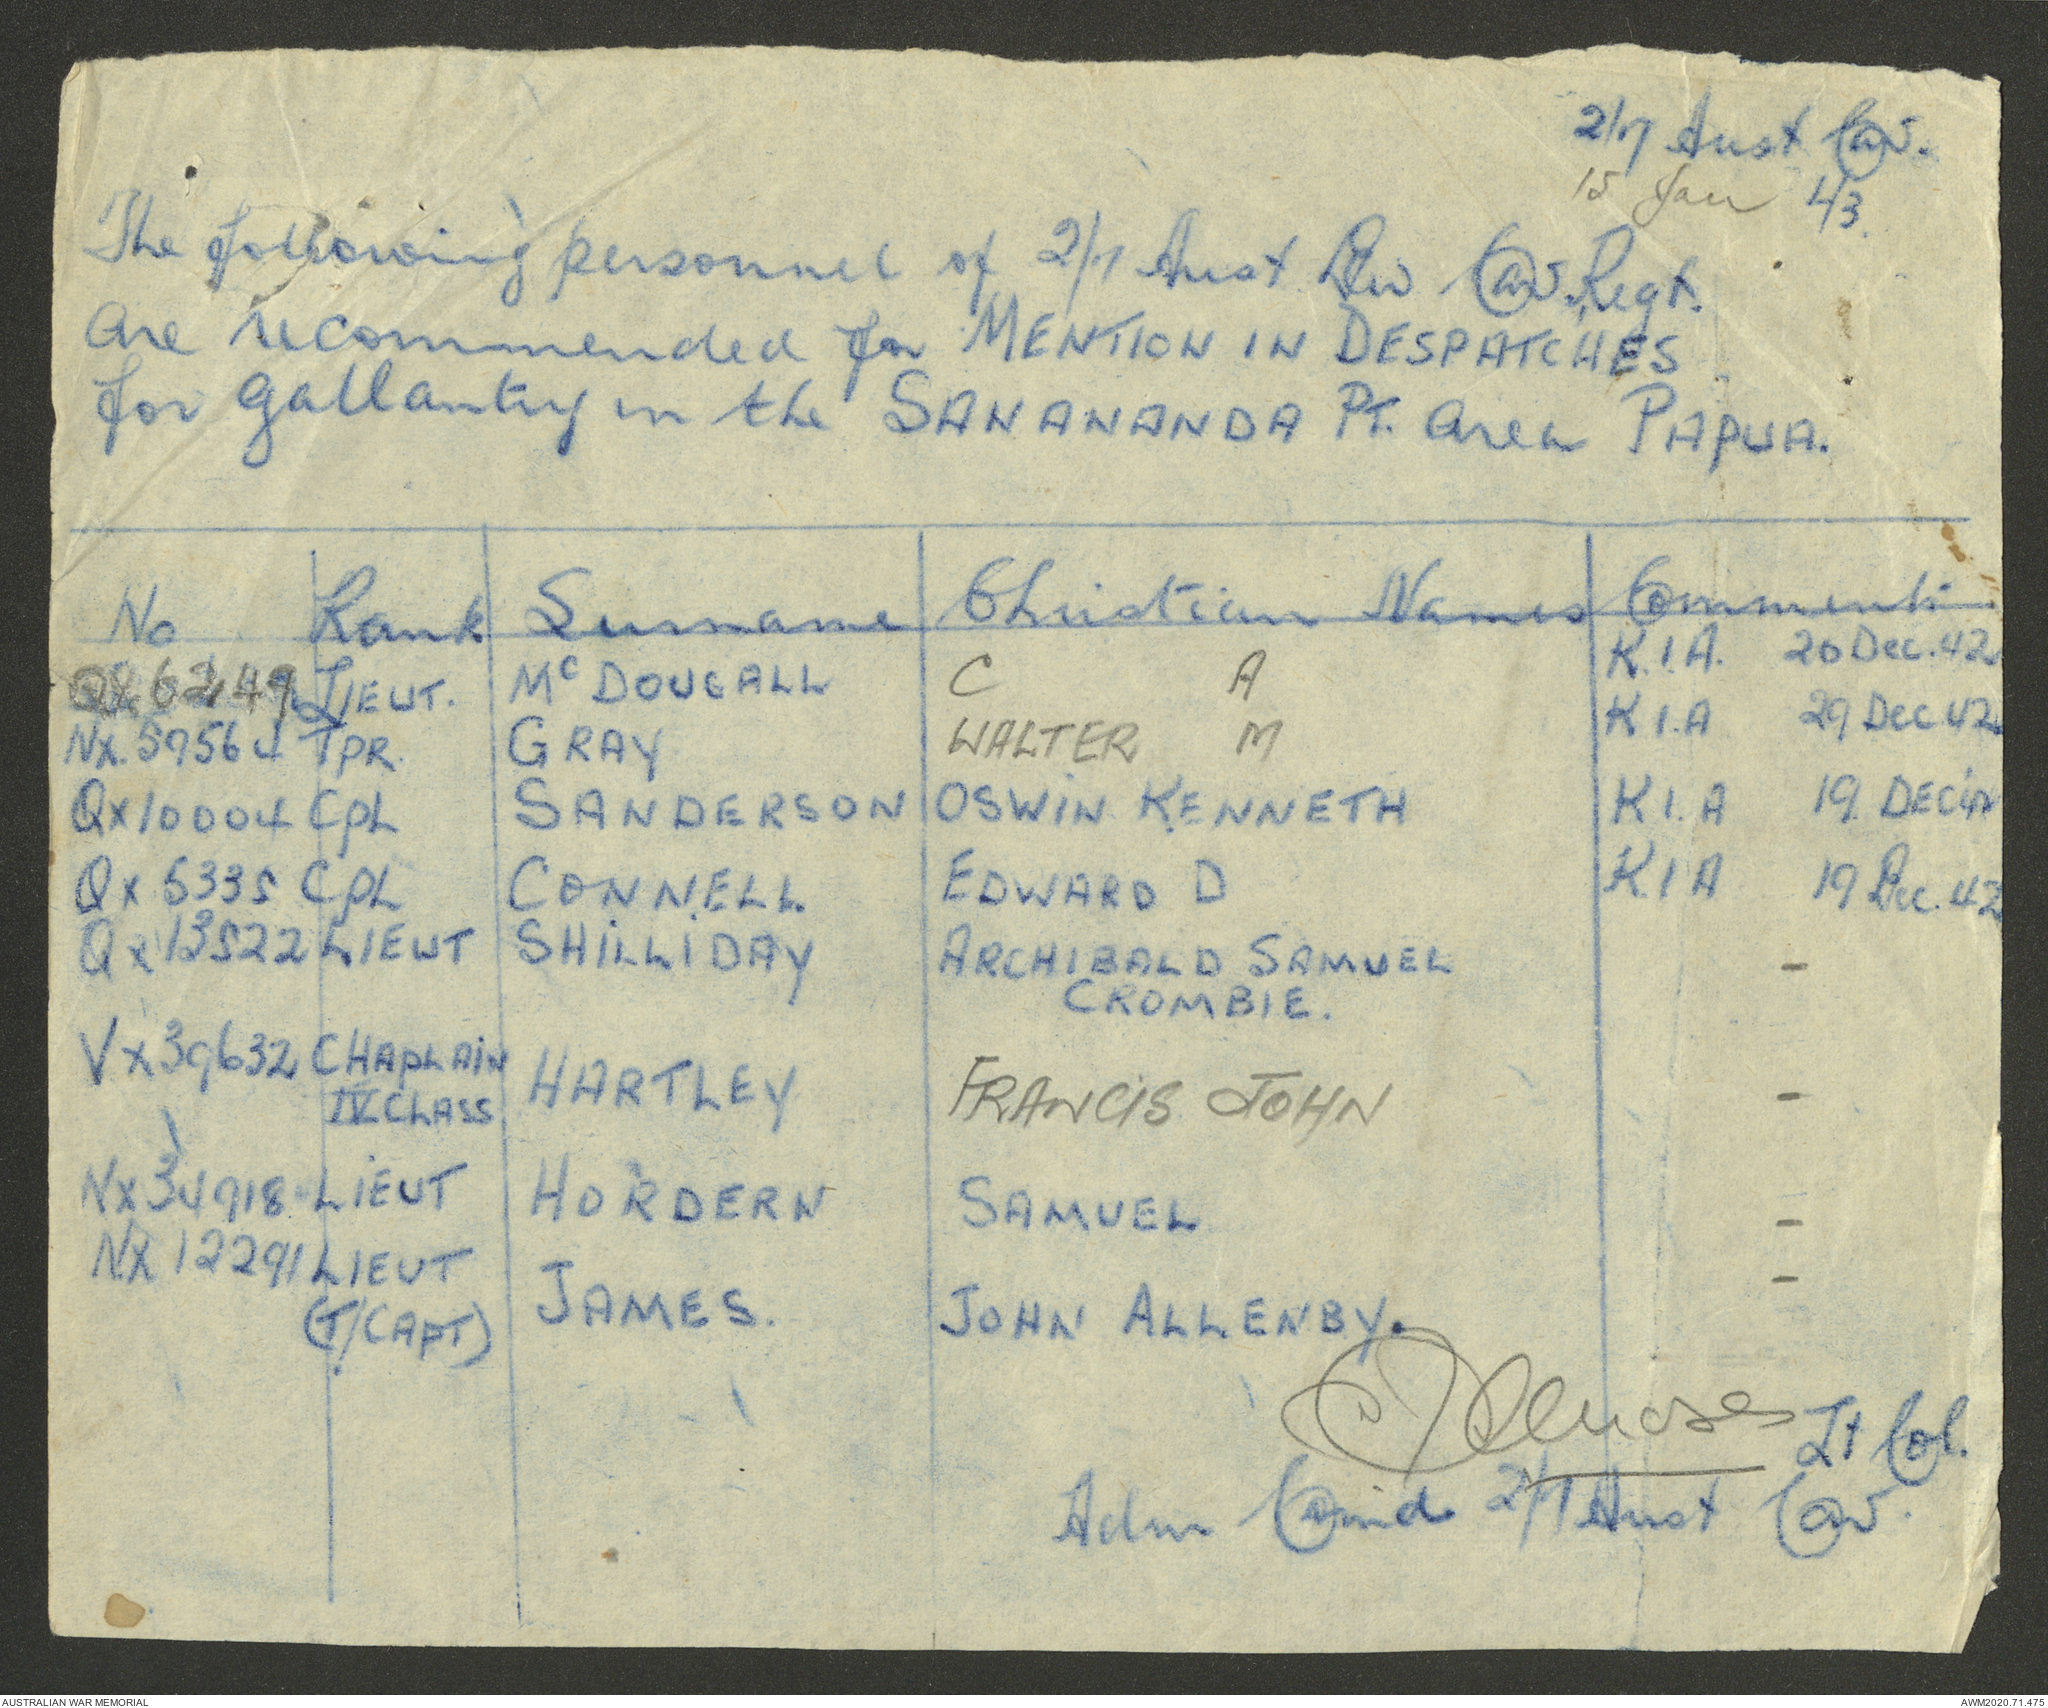 2/7 Aust Cav.
15 Jan 43.
The following personnel of 2/7 Aust Div Cav. Regt.
are recommended for MENTION IN DESPATCHES
for gallantry in the SANANANDA PT. area PAPUA.
No Rank Surname Christian Names Comments
QX 6249 LIEUT. McDOUGALL C A K.I.A. 20 Dec. 42
NX. 59564 TPR. GRAY WALTER M K.I.A 29 Dec 42
QX10004 CPL SANDERSON OSWIN KENNETH K.I.A 19. DEC
QX 6335 CPL CONNELL EDWARD D K.I.A 19 Dec. 42
QX 13522 LIEUT SHILLIDAY ARCHIBALD SAMUEL -
CROMBIE.
VX39632 CHAPLAIN HARTLEY FRANCIS JOHN -
IV CLASS
NX34918 LIEUT HORDERN SAMUEL -
NX 12291 LIEUT JAMES. JOHN ALLENBY. -
(T/CAPT)
Lt Col.
Adm Comd 2/7 Aust Cav.
AUSTRALIAN WAR MEMORIAL AWM2020.71.475